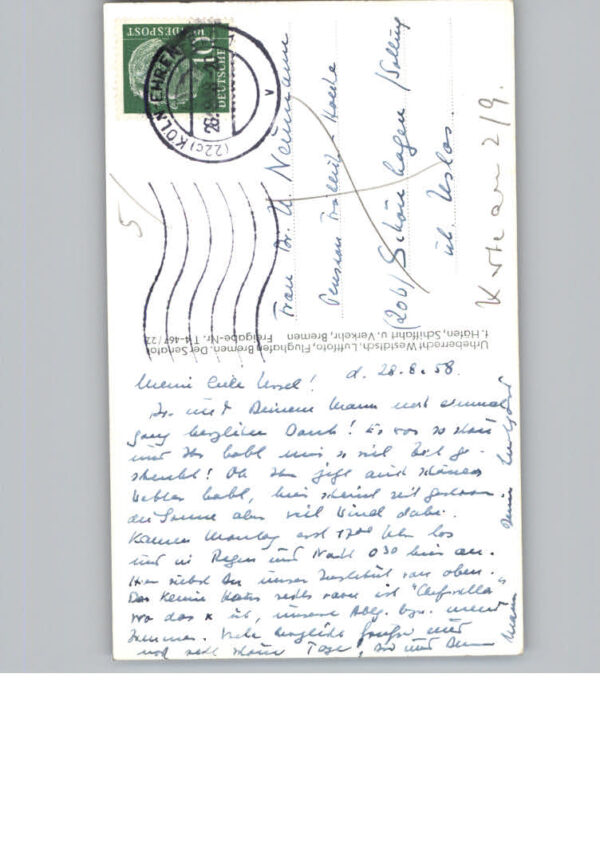 BUNDESPOST
10
DEUTSCHE
(22c) KÖLN-EHREN
Frau Dr. U. Neumann
Pension
(20b) Schönhagen / Solling
üb. Uslar.
2/9.
5/
Urheberrecht Westdtsch. Luftfoto, Flughafen Bremen. Der Senator
f. Häfen, Schiffahrt u. Verkehr, Bremen Freigabe-Nr. T 4-467/22
Meine liebe Ursel! d. 28.8.58.
Dir und Deinem Mann noch einmal
ganz herzlichen Dank! Es war so schön
und Ihr habt mir so viel Zeit ge-
schenkt! Ob Ihr jetzt auch schönes
Wetter habt, hier scheint seit gestern
die Sonne aber viel Wind dabei.
Kamen Montag erst 17⁰⁰ Uhr los
und in Regen und Nacht 0³⁰ hier an.
Hier siehst Du unser Institut von oben.
Das kleine Haus rechts davon ist
wo das x ist, unsere Abtlg. bzw. mein
Zimmer. Viele herzliche Grüße und
noch recht schöne Tage, Dir und Deinem
Mann Deine